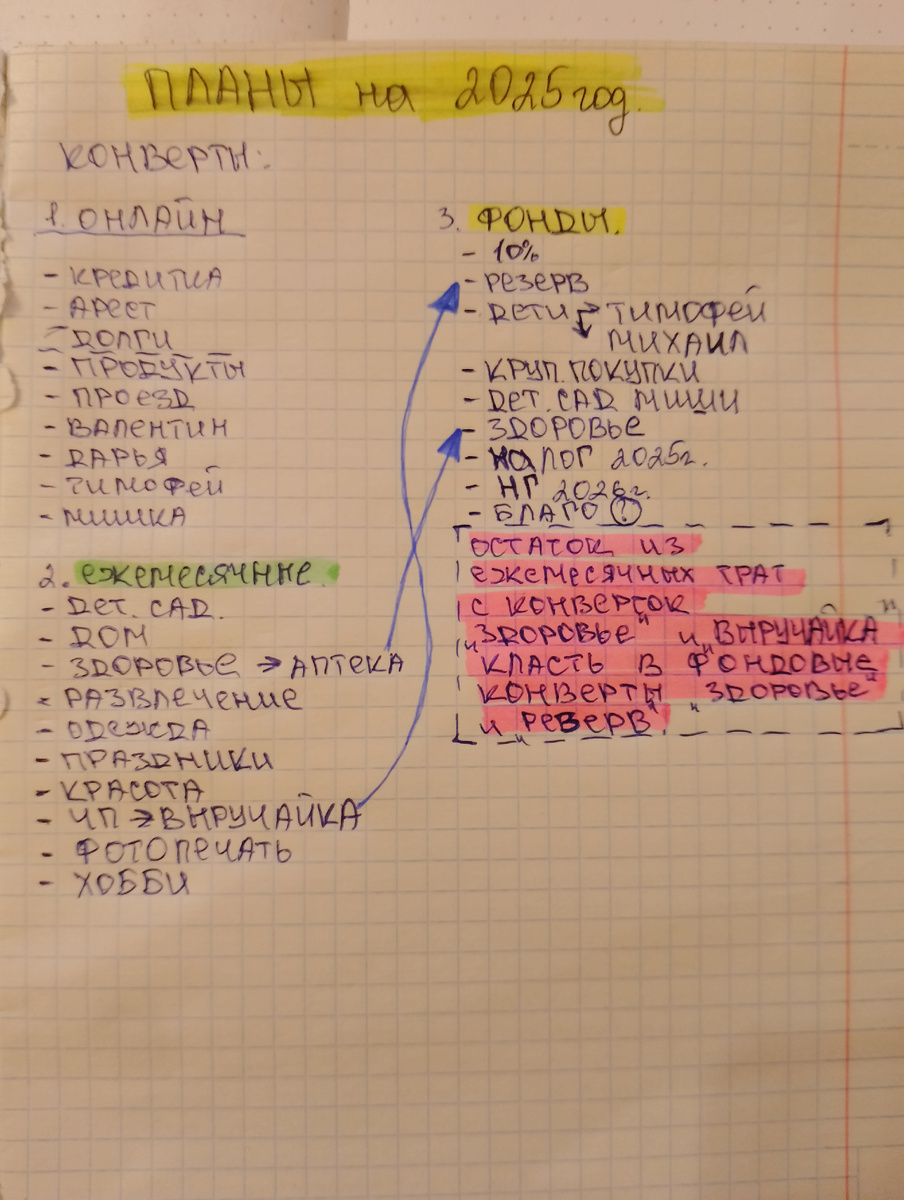 ПЛАНЫ на 2025 год.
КОНВЕРТЫ:
1. ОНЛАЙН
- КРЕДИТКА
- АРЕСТ
- ДОЛГИ
- ПРОДУКТЫ
- ПРОЕЗД
- ВАЛЕНТИН
- ДАРЬЯ
- ТИМОФЕЙ
- МИШКА
2. ежемесячные.
- Дет. САД.
- ДОМ
- ЗДОРОВЬЕ → АПТЕКА
- РАЗВЛЕЧЕНИЕ
- ОДЕЖДА
- ПРАЗДНИКИ
- КРАСОТА
- ЧП → ВЫРУЧАЙКА
- ФОТОПЕЧАТЬ
- ХОББИ
3. ФОНДЫ.
- 10%
- РЕЗЕРВ
- ДЕТИ → ТИМОФЕЙ
↓ МИХАИЛ
- КРУП. ПОКУПКИ
- ДЕТ. САД МИШИ
- ЗДОРОВЬЕ
- НАЛОГ 2025г.
- НГ 2026г.
- БЛАГО ?
ОСТАТОК ИЗ
ЕЖЕМЕСЯЧНЫХ ТРАТ
С КОНВЕРТОК
"ЗДОРОВЬЕ" И "ВЫРУЧАЙКА"
КЛАСТЬ В ФОНДОВЫЕ
КОНВЕРТЫ "ЗДОРОВЬЕ"
И "РЕЗЕРВ".